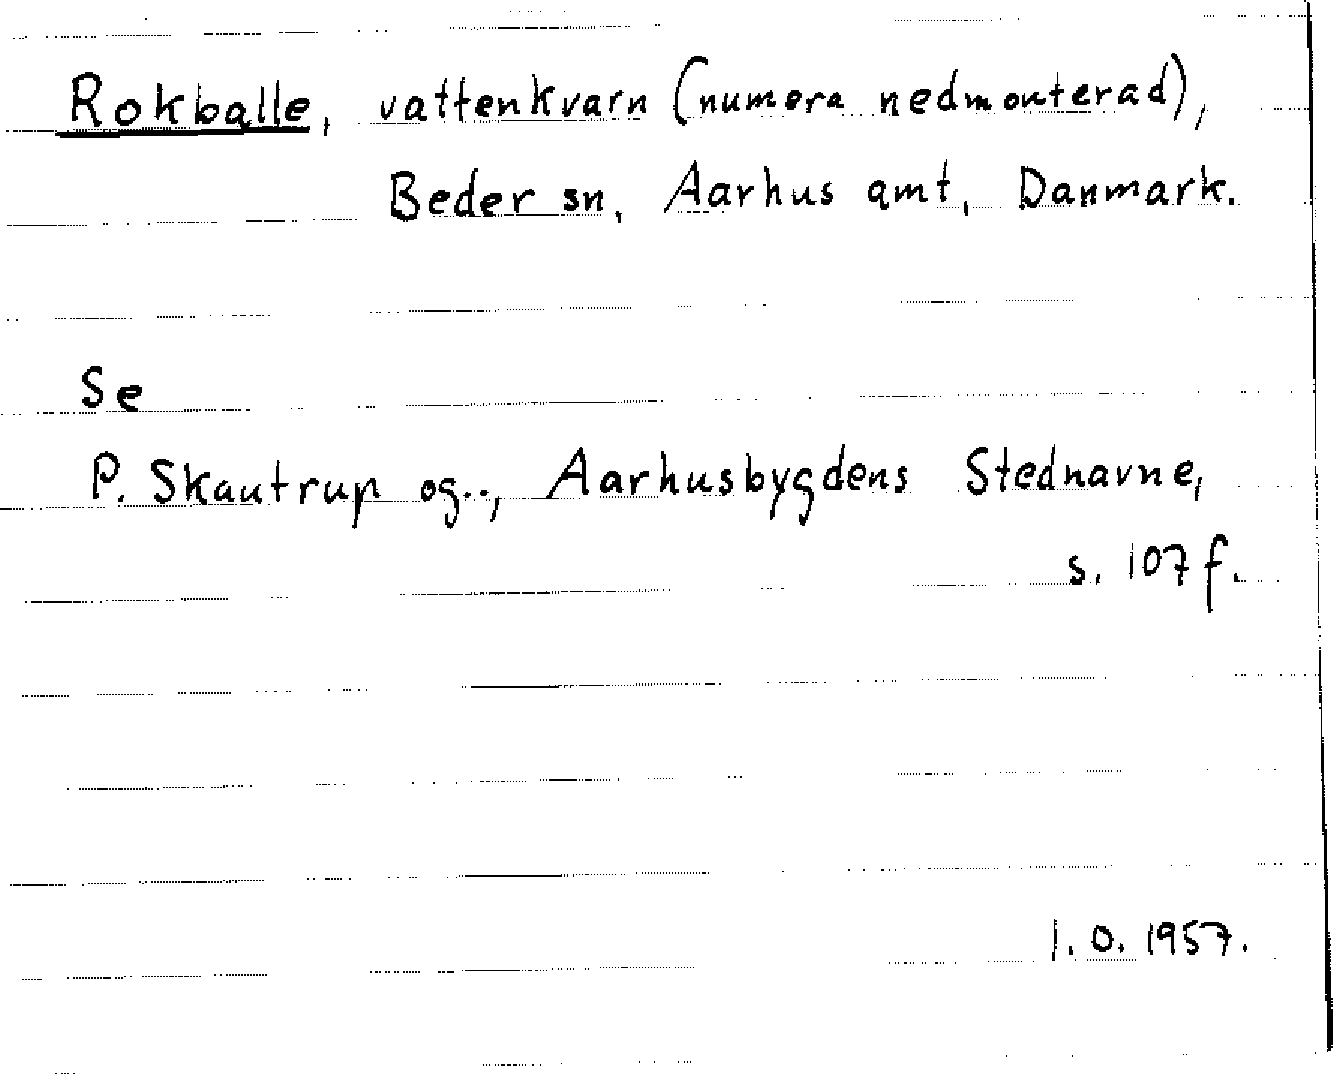 Rokballe, vattenkvarn (numera nedmonterad),
Beder sn, Aarhus amt, Danmark.
Se
P. Skautrup og.., Aarhusbygdens Stednavne,
s. 107 f.
I. O. 1957.